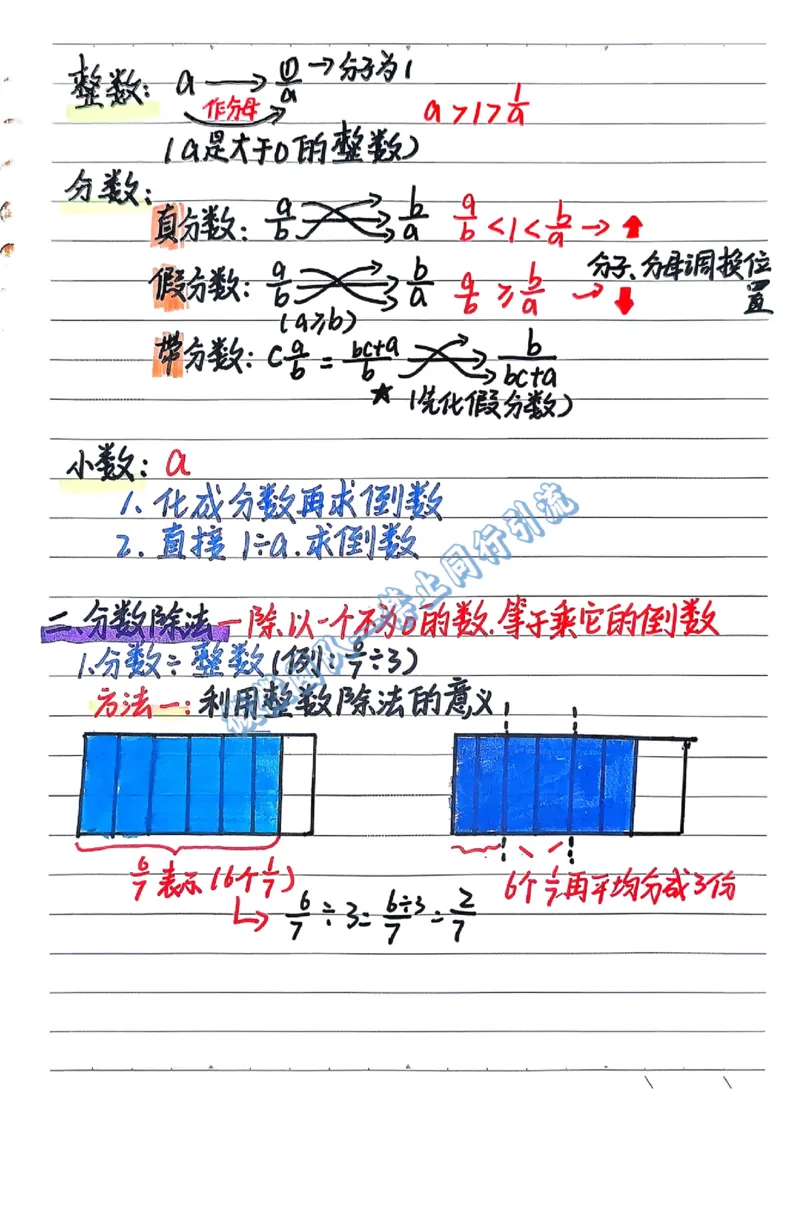 整数: a → ①/a → 分子为1
作分母
a>1>1/a
(a是大于0的整数)
分数:
真分数: a/b → b/a a/b<1<b/a → ↑
分子、分母调换位置
假分数: a/b → b/a a/b≥b/a → ↓
(a≥b)
带分数: c a/b = bc+a/b → b/bc+a
★(先化假分数)
小数: a
1. 化成分数再求倒数
2. 直接1÷a.求倒数
二、分数除法—除以一个不为0的数.等于乘它的倒数
1.分数÷整数(例: 6/7÷3)
方法一: 利用整数除法的意义
6/7表示(6个1/7)
6个1/7再平均分成3份
↳ 6/7÷3=6÷3/7=2/7